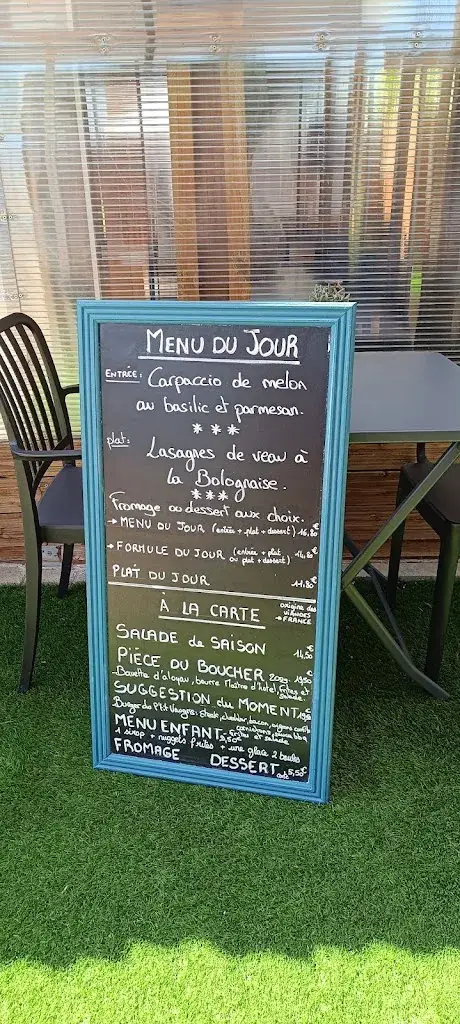 MENU DU JOUR
ENTRÉE: Carpaccio de melon
au basilic et parmesan.
***
plat: Lasagnes de veau à
la Bolognaise.
***
Fromage ou dessert aux choix.
→ MENU DU JOUR (entrée + plat + dessert) 16,80€
→ FORMULE DU JOUR (entrée + plat
ou plat + dessert) 14,80€
PLAT DU JOUR 11,80€
À LA CARTE
origine des
viandes
→ FRANCE
SALADE de SAISON 14,50€
PIÈCE DU BOUCHER 200gr. 19,50€
Bavette d'aloyau, beurre Maître d'hotel, Frites et
salade.
SUGGESTION du MOMENT
Burger du P'tit steak, cheddar, bacon, oignons confits
cornichons, sauce bbq
Frites et salade
MENU ENFANT 5,50€
1 sirop + nuggets frites + une glace 2 boules
FROMAGE DESSERT 5,50€